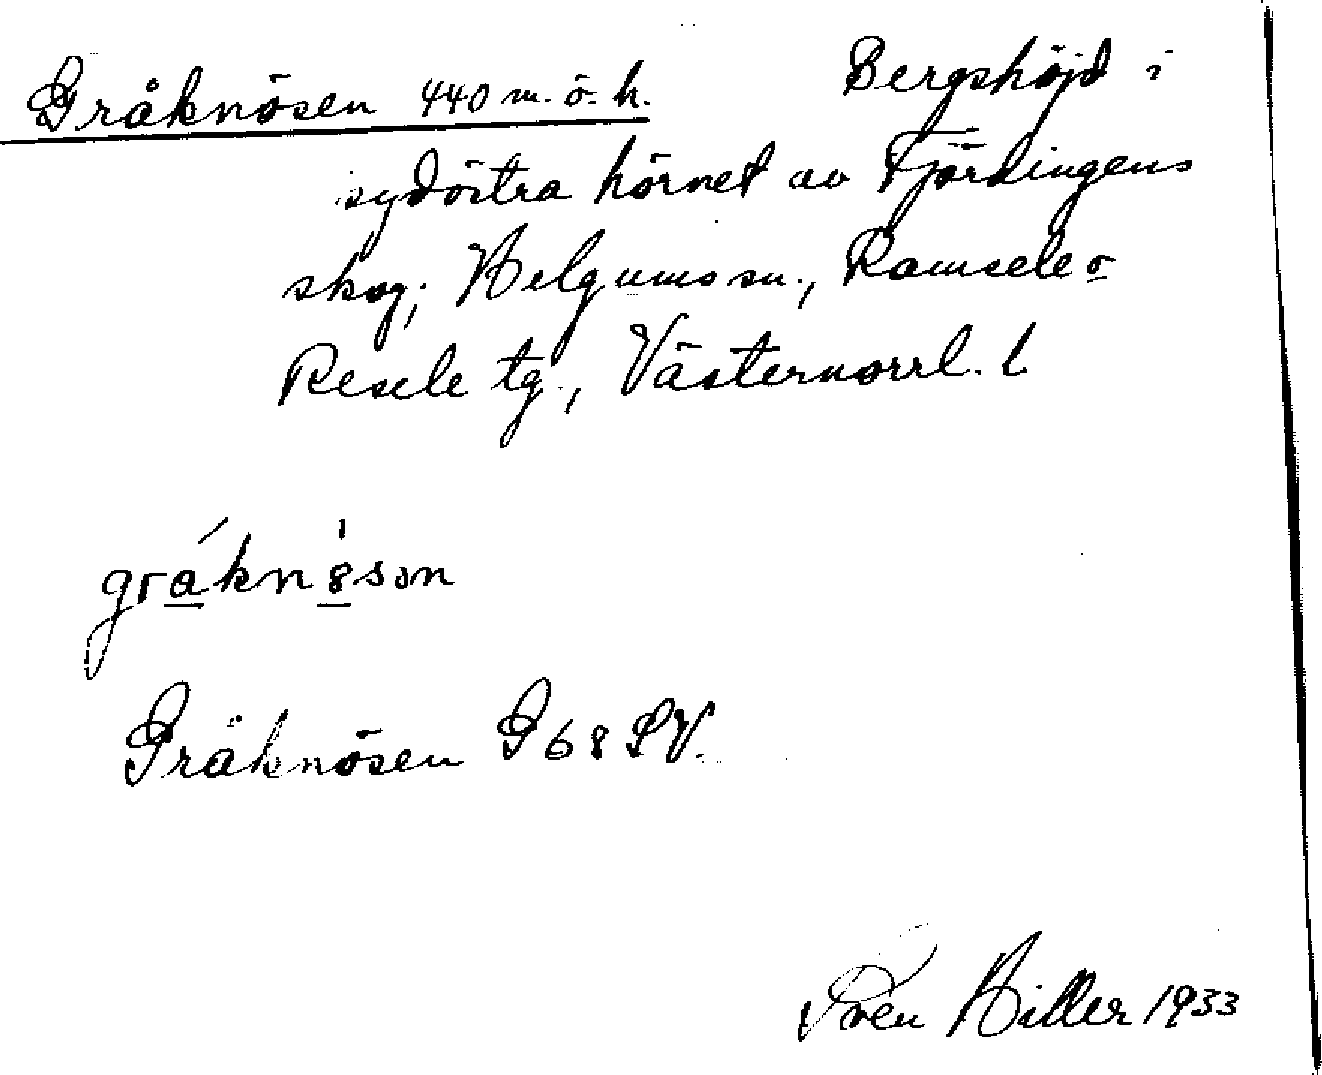 Gråknösen 440 m. ö. h. Bergshöjd i
sydöstra hörnet av Fjärdingens
skog, Helgums sn., Ramsele o
Resele tg., Västernorrl. l
gråknösən
Gråknösen G 68 SV.
Sven Hiller 1933